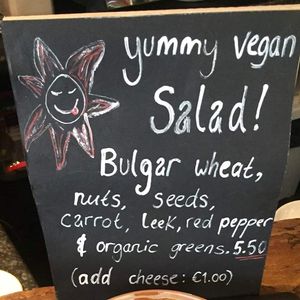 yummy vegan
Salad!
Bulgar wheat,
nuts, seeds,
carrot, leek, red pepper
& organic greens. 5.50
(add cheese: €1.00)